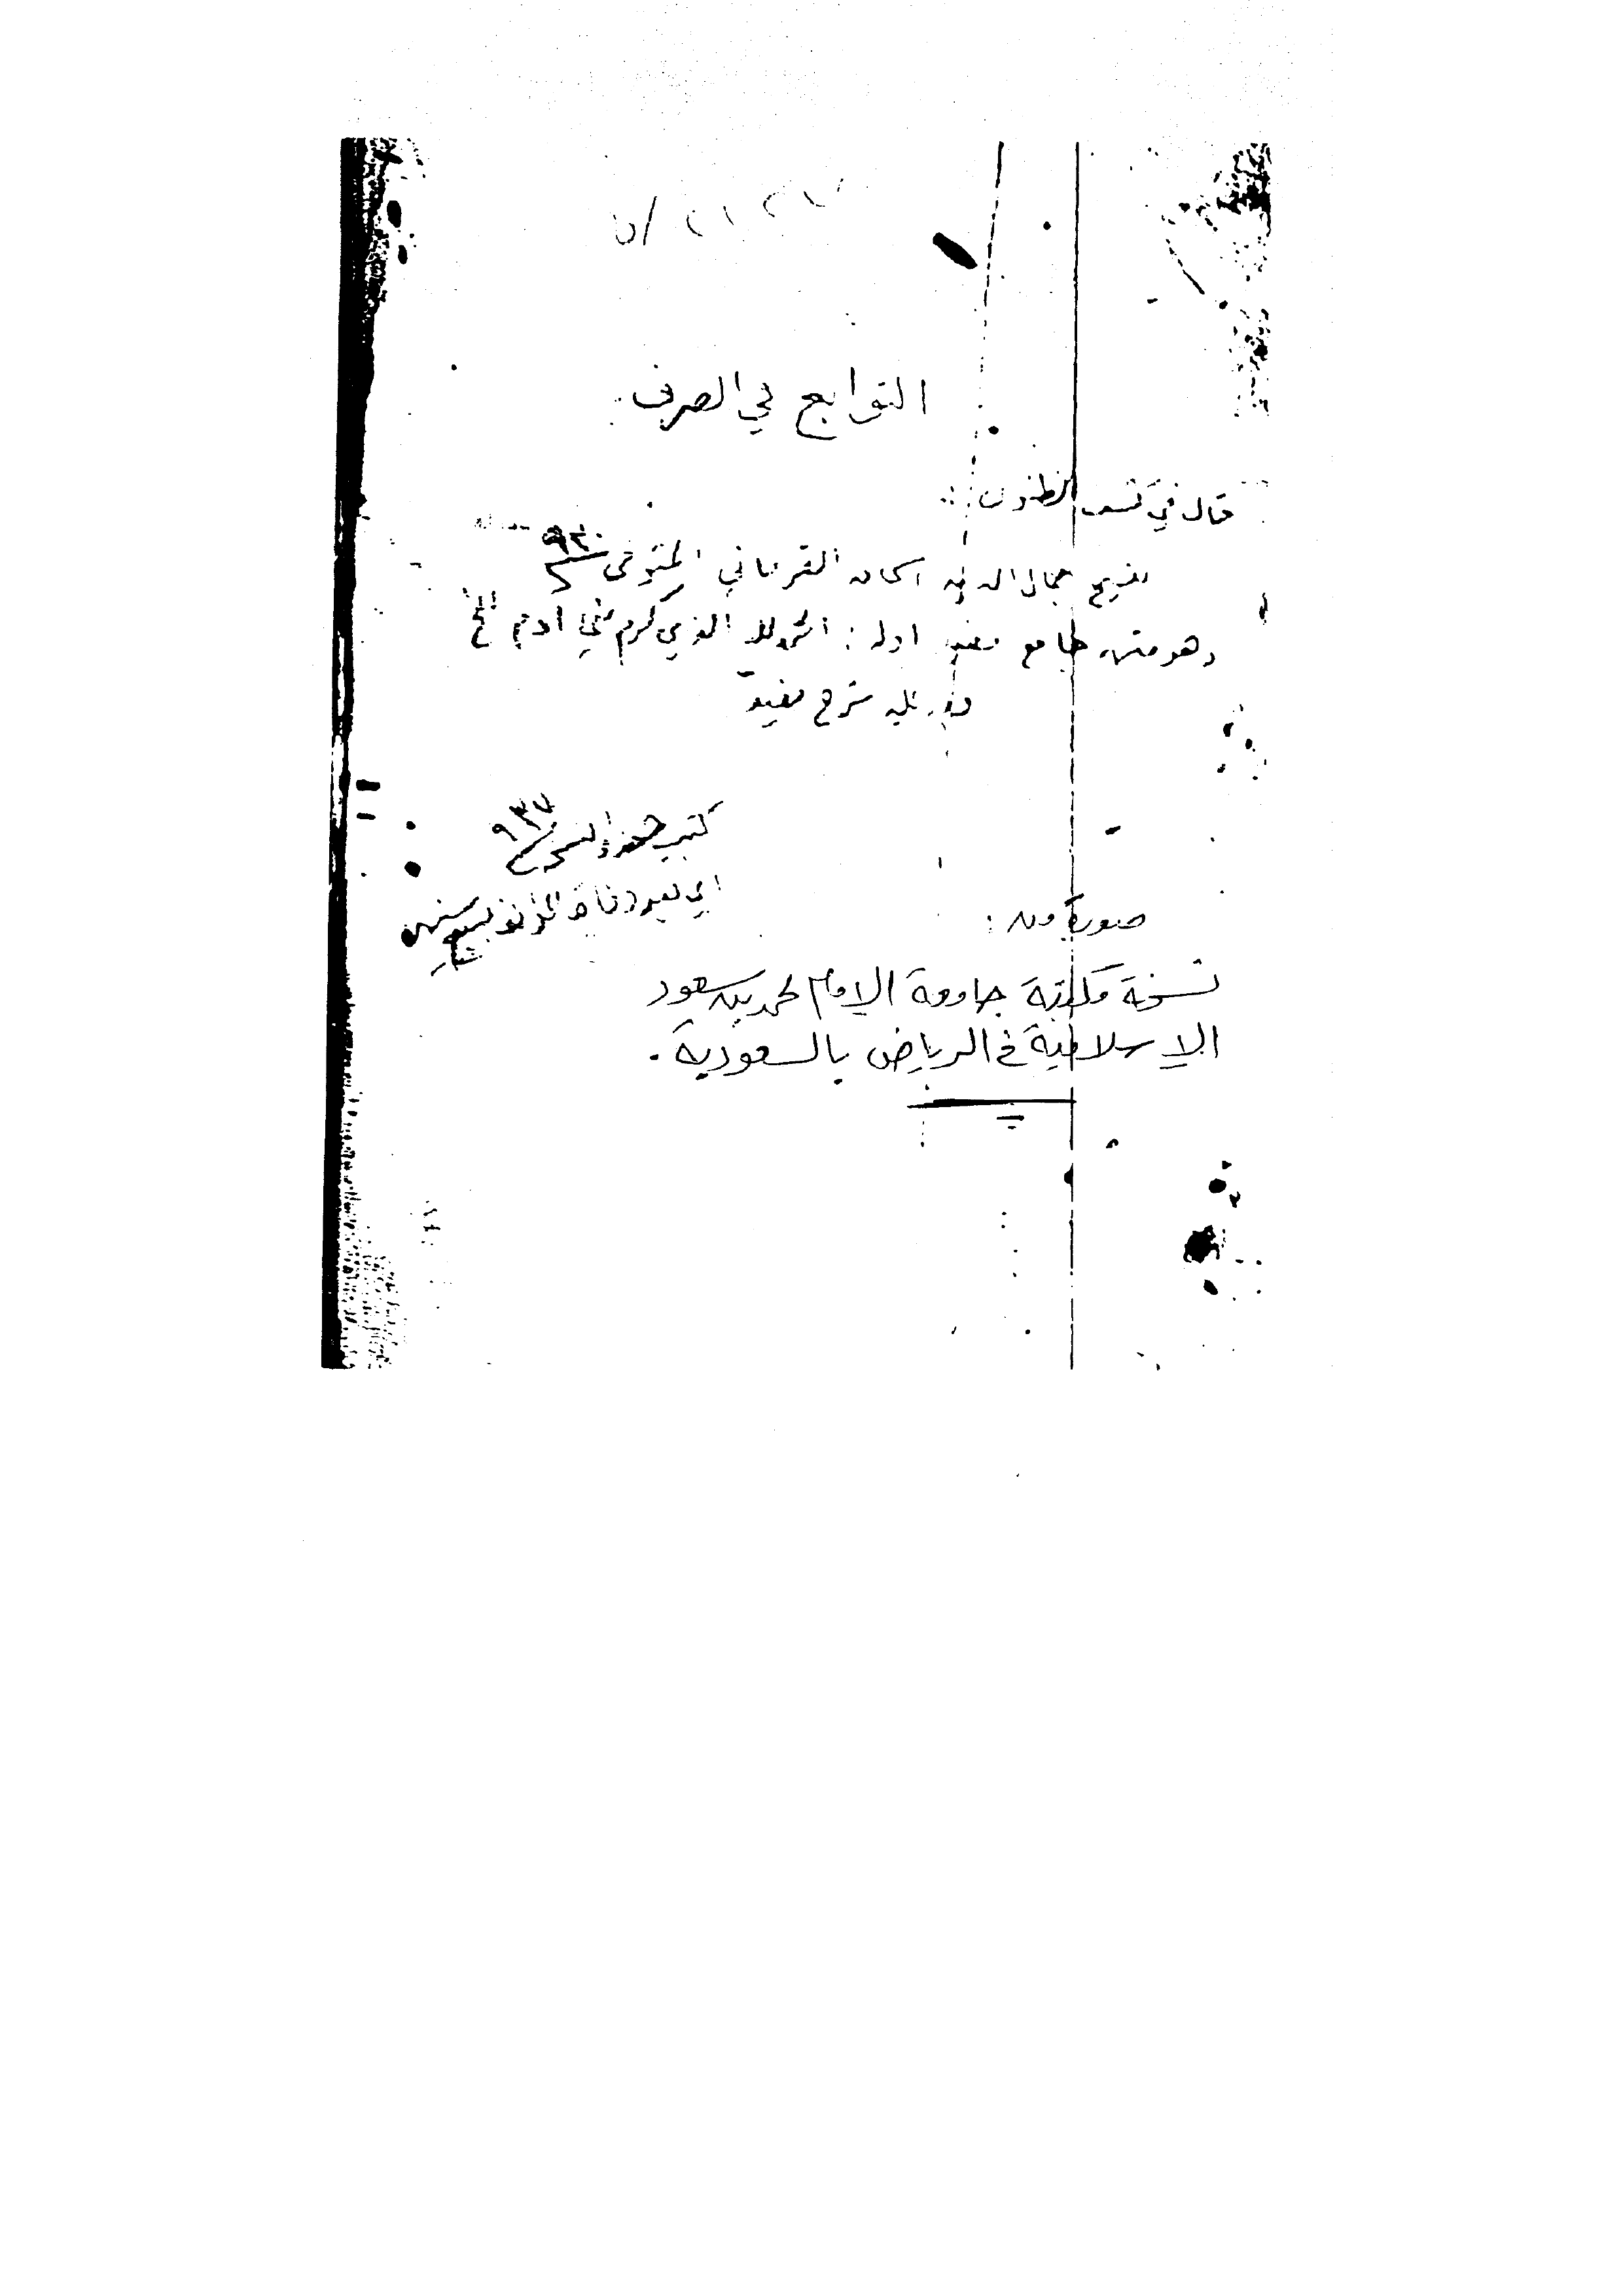 التوابع في الصرف
قال في كشف الظنون :
للشيخ جمال الدين اسحاق القرماني المتوفى ٩٣٠
وهو متن جامع مفيد اوله : الحمد لله الذي كرم بني ادم الخ
وله عليه شرح مفيد
كتب هذه النسخ ٩٣٧
اي بعد وفاة المؤلف بسبع سنين
صورة من :
نسخة مكتبة جامعة الامام محمد بن سعود
الإسلامية في الرياض بالسعودية .